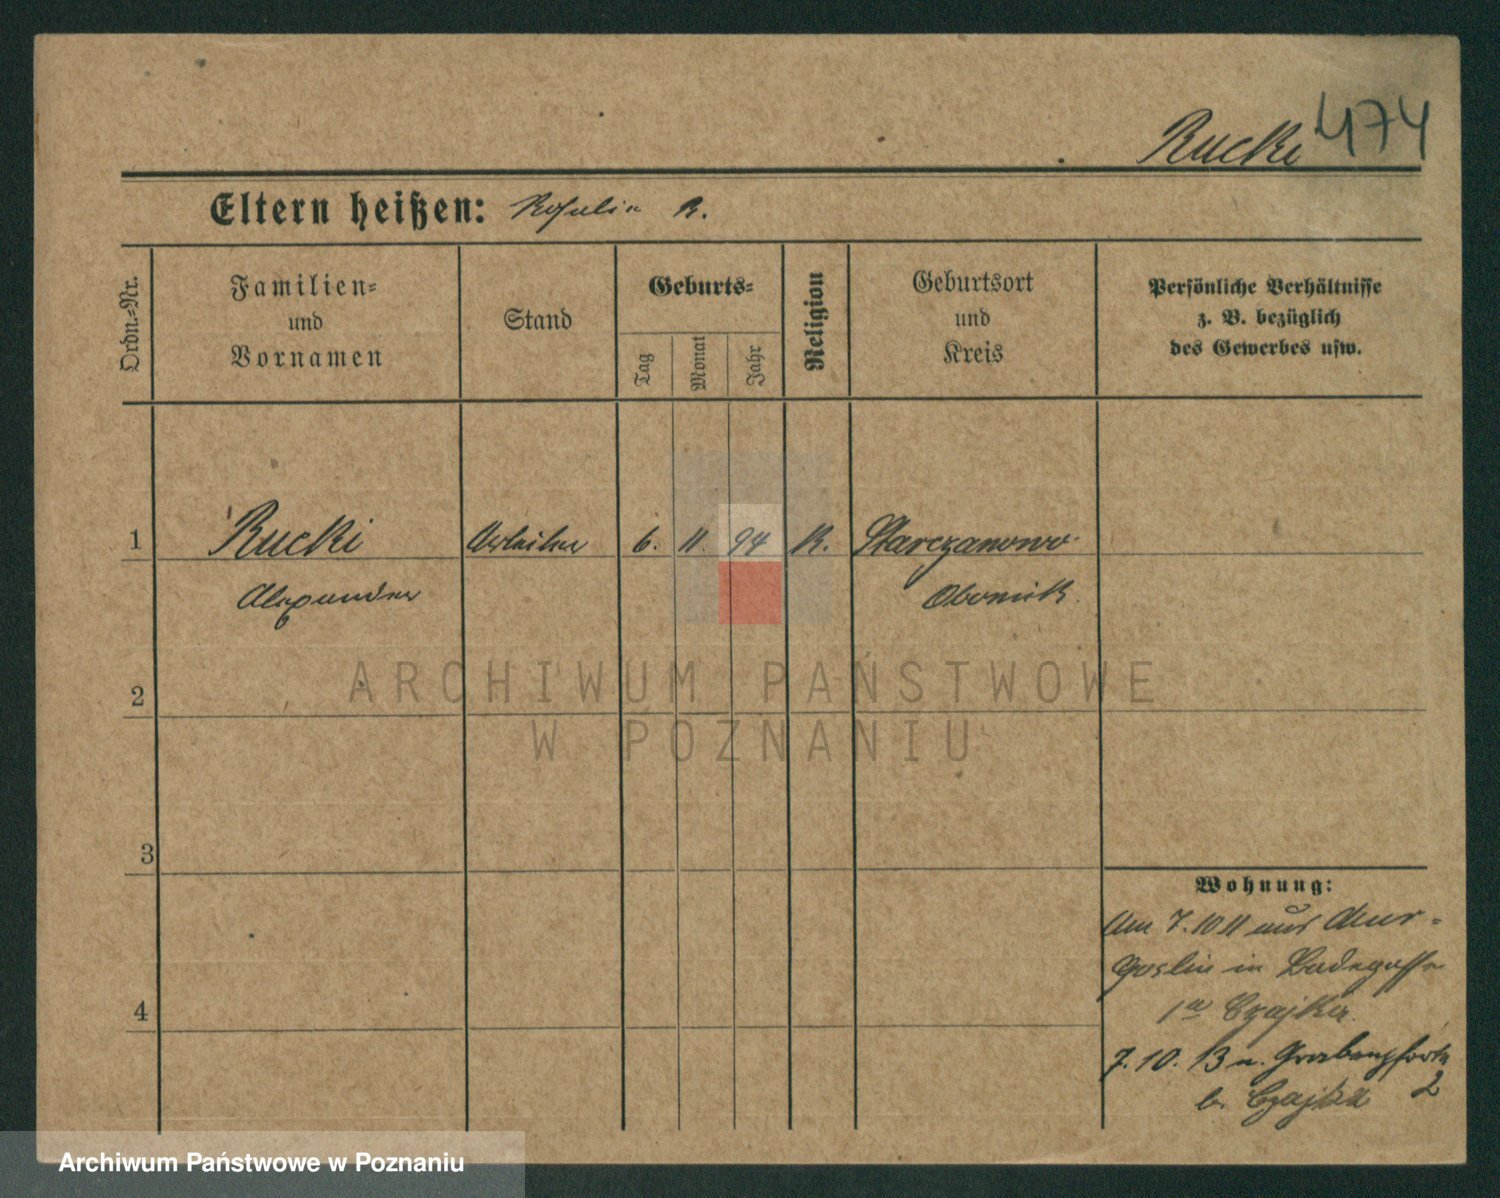 Rucki 474
Eltern heißen: Rosalie R.
Ordn.-Nr.
Familien-
und
Vornamen
Stand
Geburts-
Tag
Monat
Jahr
Religion
Geburtsort
und
Kreis
Persönliche Verhältnisse
z. B. bezüglich
des Gewerbes usw.
1 Rucki Arbeiter 6. 11. 94 R. Starczanowo
Alexander Obornik.
2
ARCHIWUM PAŃSTWOWE
W POZNANIU
3
4
Wohnung:
Am 7.10 11 aus Mur-
Goslin in Badegasse
1a Czajka.
7.10. 13 n. Grabenpforte
b. Czajka 2
Archiwum Państwowe w Poznaniu